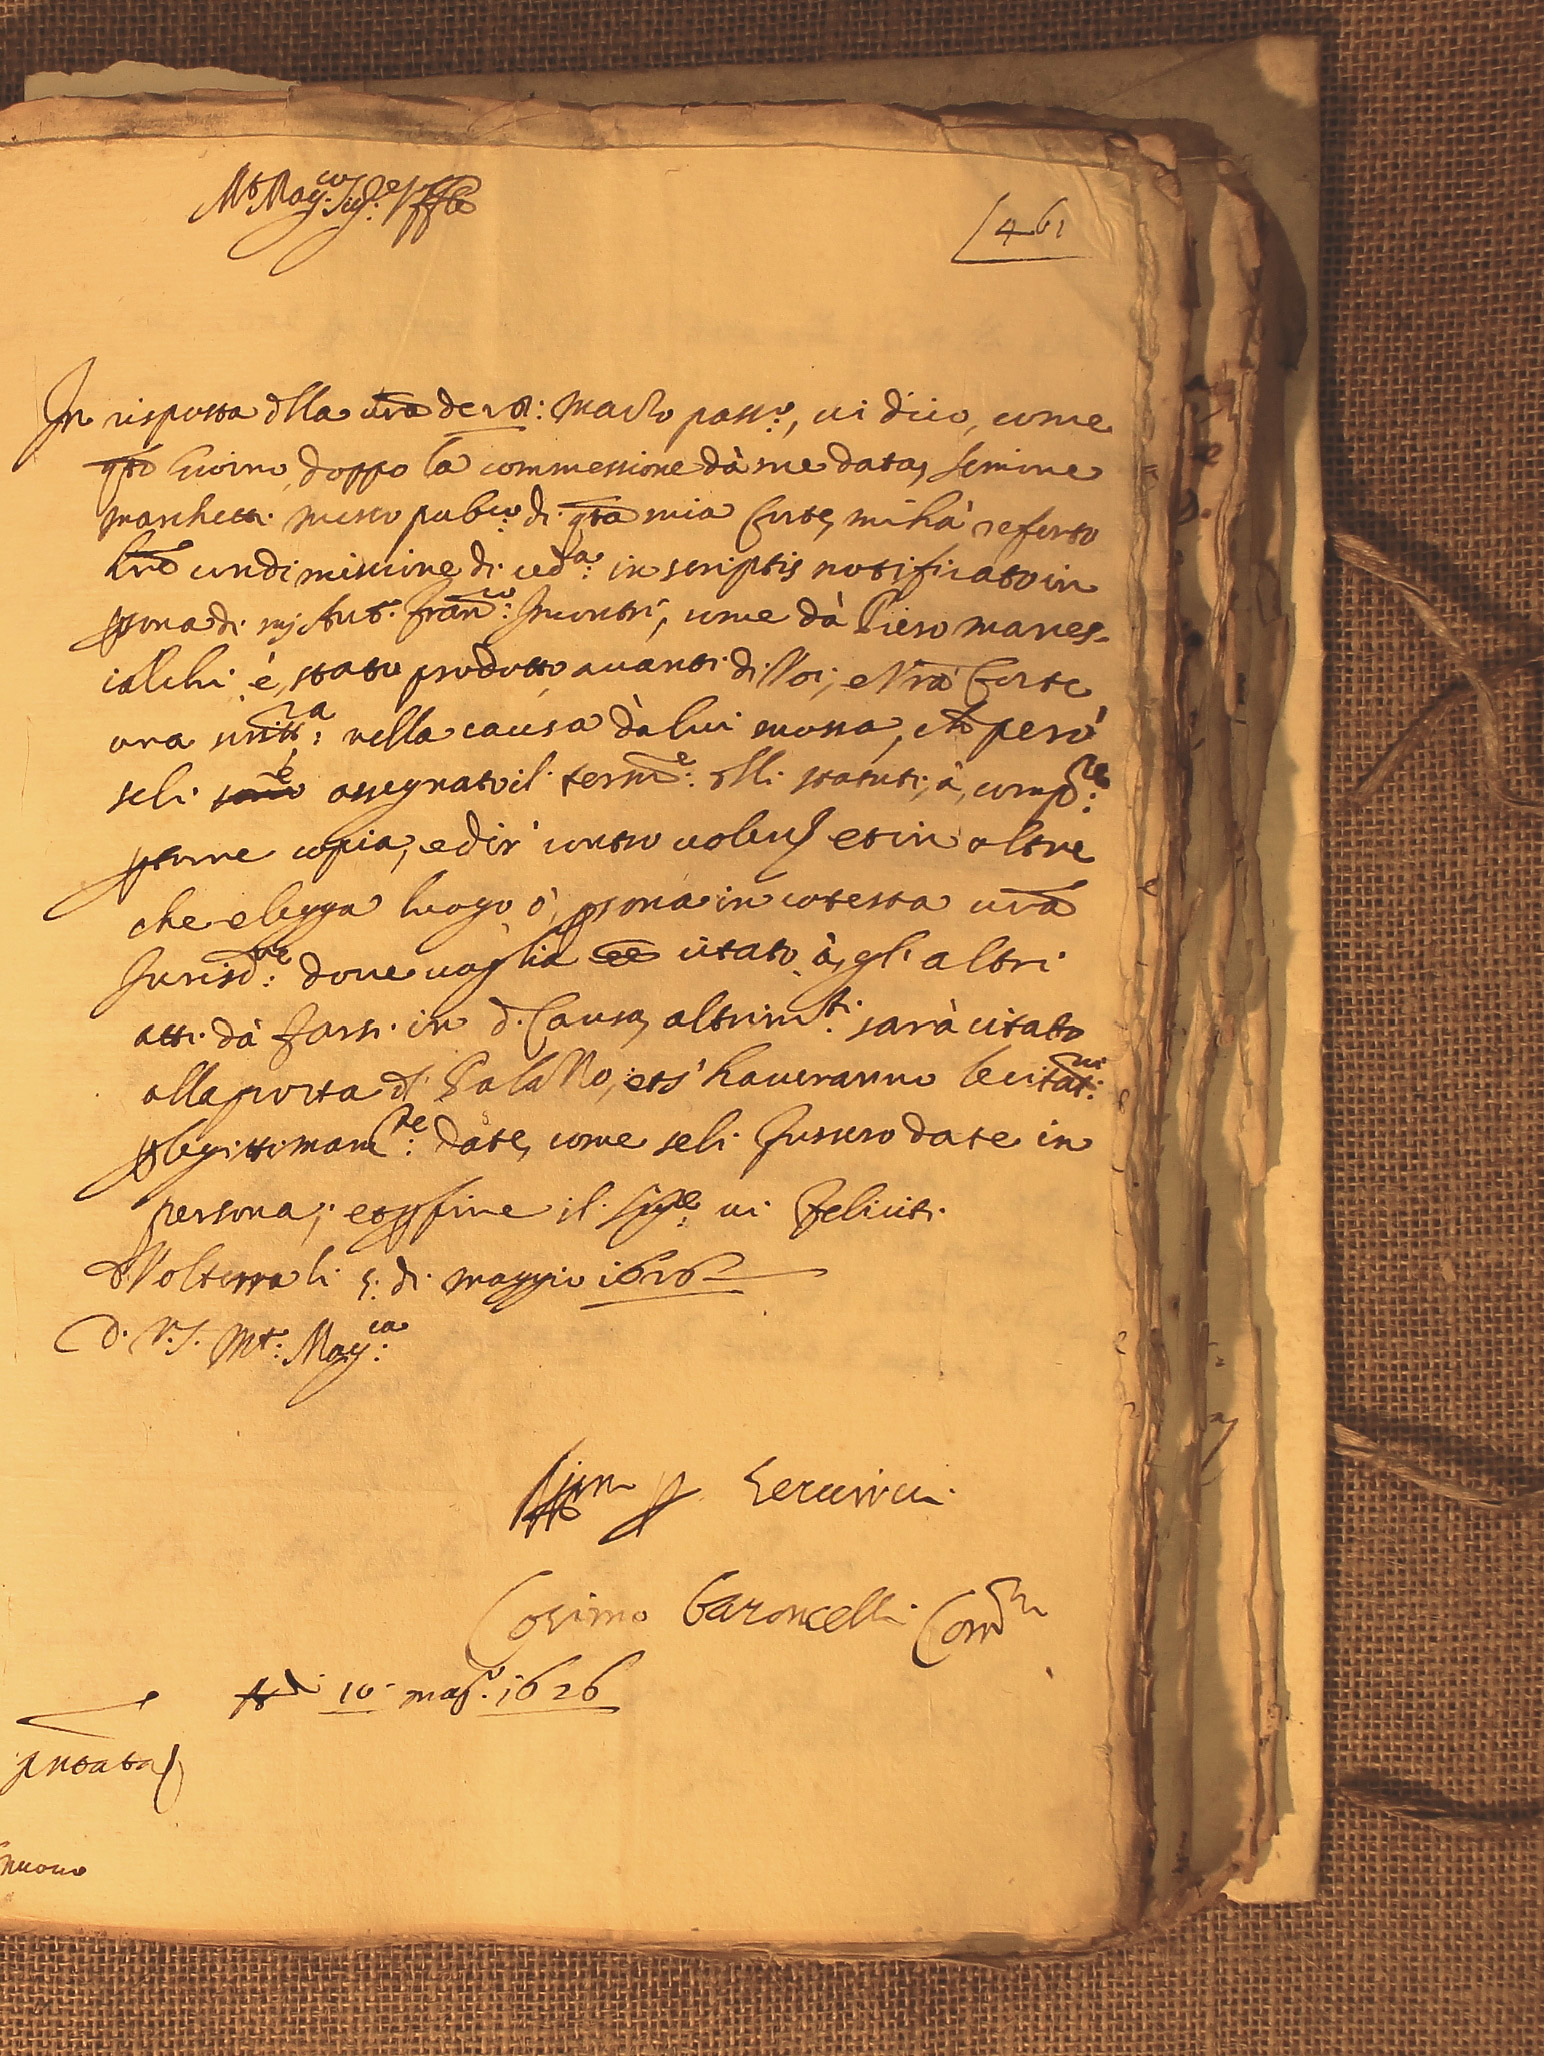 Mto Mag.co Sig.re
461
In risposta d'lla vr̃a de 28: Marzo pass.o, vi dico, come
q̃sto Giorno, doppo la commessione dà me data, Simone
Marchetti Messo pub.co di q̃sta mia Corte, mi hà referto
hr̃e con dimissione di ced.a: in scriptis notificato in
persona di mj Ant.o Fran.co: Incontri, come dà Piero manes-
calchi è, stato prodotto avanti di Voi, e Vr̃a Corte
ora nella causa dà lui mossa, et però
seli è assegnato il term.e: d'lli statuti, à, comp.re:
pterne copia, e dir' contro volens et in oltre
che elegga luogo ò, persona in cotesta vr̃a
Jurisd.ne: dove voglia ee citato à, gli altri
atti dà farsi in d. Causa, altrim.ti sarà citato
alla porta d' Palazzo, et s' haveranno le citat.ni:
p legittimam.te: date, come seli fussero date in
persona; et p fine il Sig.re vi feliciti
Volterra li 5. di Maggio 1626
D. V.S. Mt.: Mag.ca:
p Servirvi
Cosimo Baroncelli Com.rio
Adi 10 mag.o 1626
pntata
nuovo